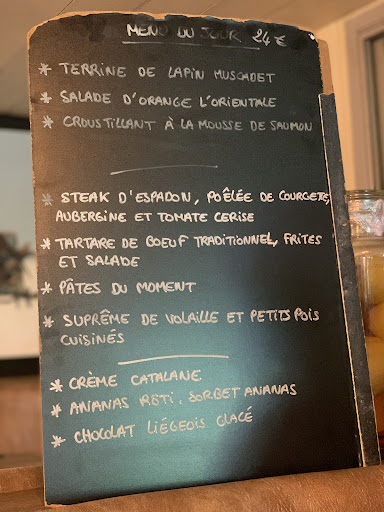 MENU DU JOUR 24€
* TERRINE DE LAPIN MUSCADET
* SALADE D'ORANGE L'ORIENTALE
* CROUSTILLANT À LA MOUSSE DE SAUMON
* STEAK D'ESPADON, POÊLÉE DE COURGETTES,
AUBERGINE ET TOMATE CERISE
* TARTARE DE BOEUF TRADITIONNEL, FRITES
ET SALADE
* PÂTES DU MOMENT
* SUPRÊME DE VOLAILLE ET PETITS POIS
CUISINÉS
* CRÈME CATALANE
* ANANAS RÔTI, SORBET ANANAS
* CHOCOLAT LIÉGEOIS GLACÉ